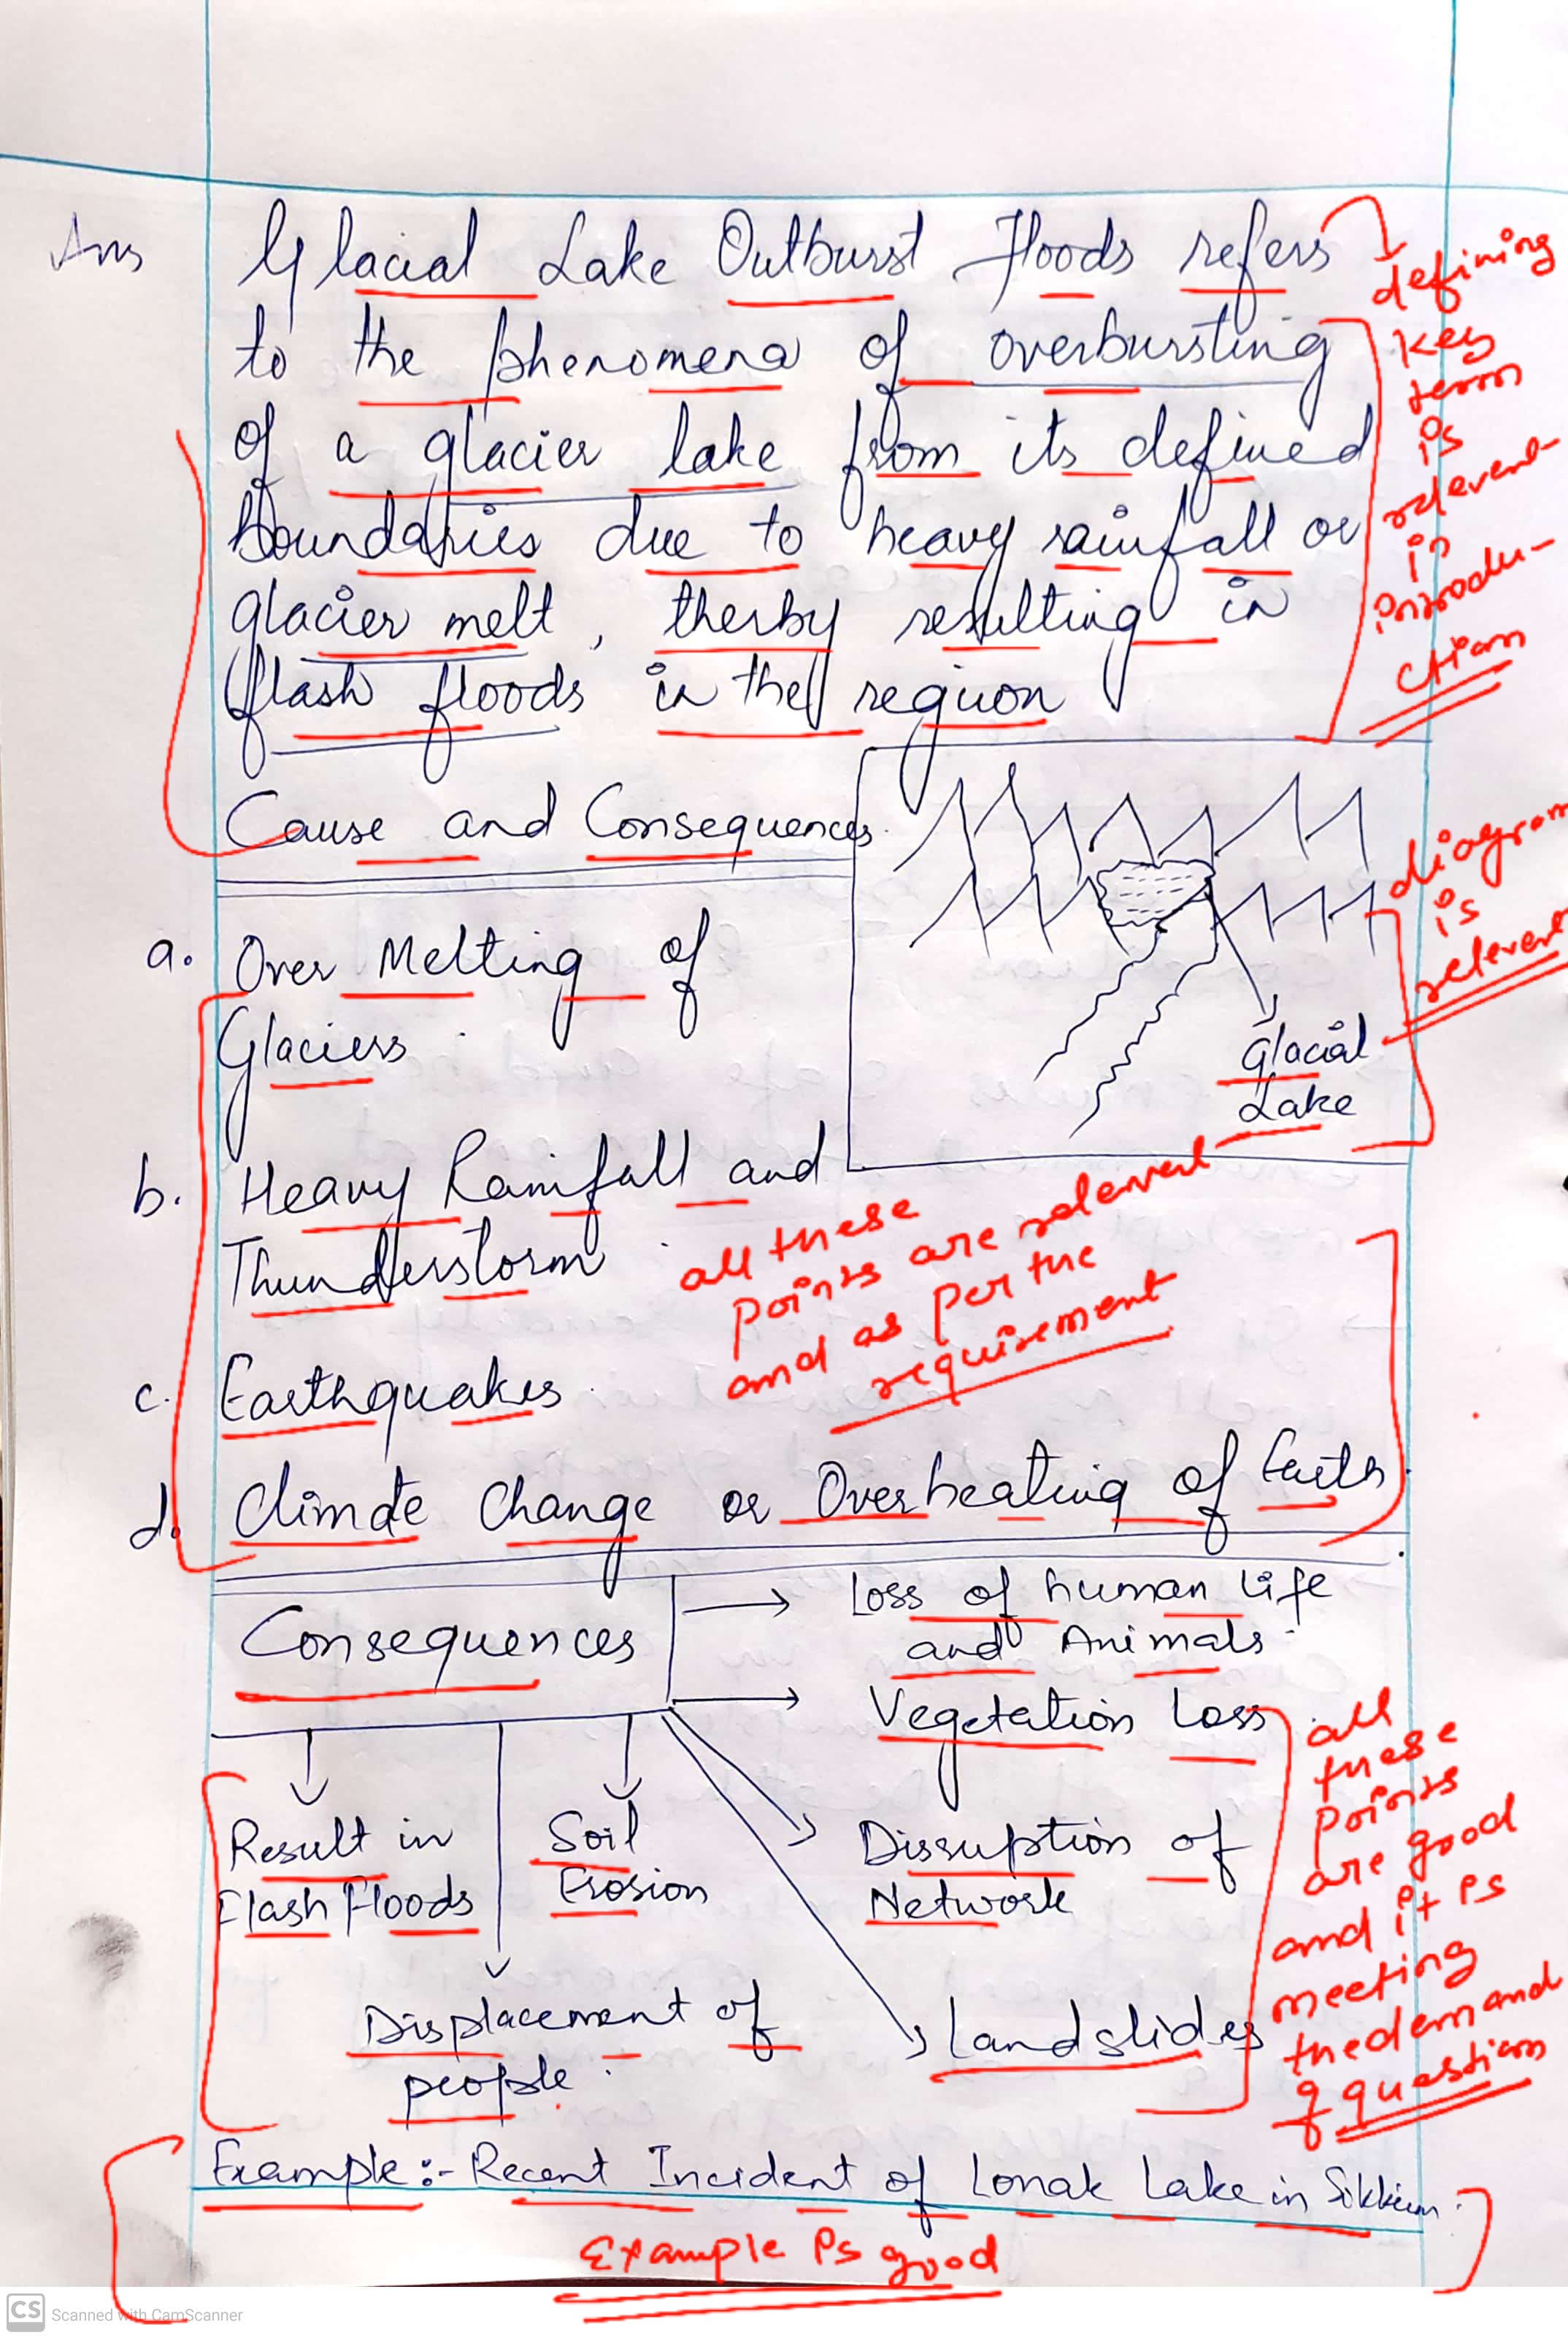 Ans Glacial Lake Outburst Floods refers
to the phenomena of overbursting
of a glacier lake from its defined
boundaries due to heavy rainfall or
glacier melt, therby resulting in
flash floods in the region
defining
key
term
is
relevent
in
introdu-
ction
Cause and Consequences.
a. Over Melting of
Glaciers.
Glacial
Lake
diagram
is
relevent
b. Heavy Rainfall and
Thunderstorm.
c. Earthquakes.
d. Climate Change or Overheating of Earth.
all these
points are relevent
and as per the
requirement
Consequences
Loss of human life
and Animals.
Vegetation Loss
Result in
Flash Floods
Soil
Erosion
Disruption of
Network
Displacement of
people.
Landslides
all
these
points
are good
and it is
meeting
the demand
of question
Example:- Recent Incident of Lonak Lake in Sikkim.
Example is good
CS Scanned with CamScanner